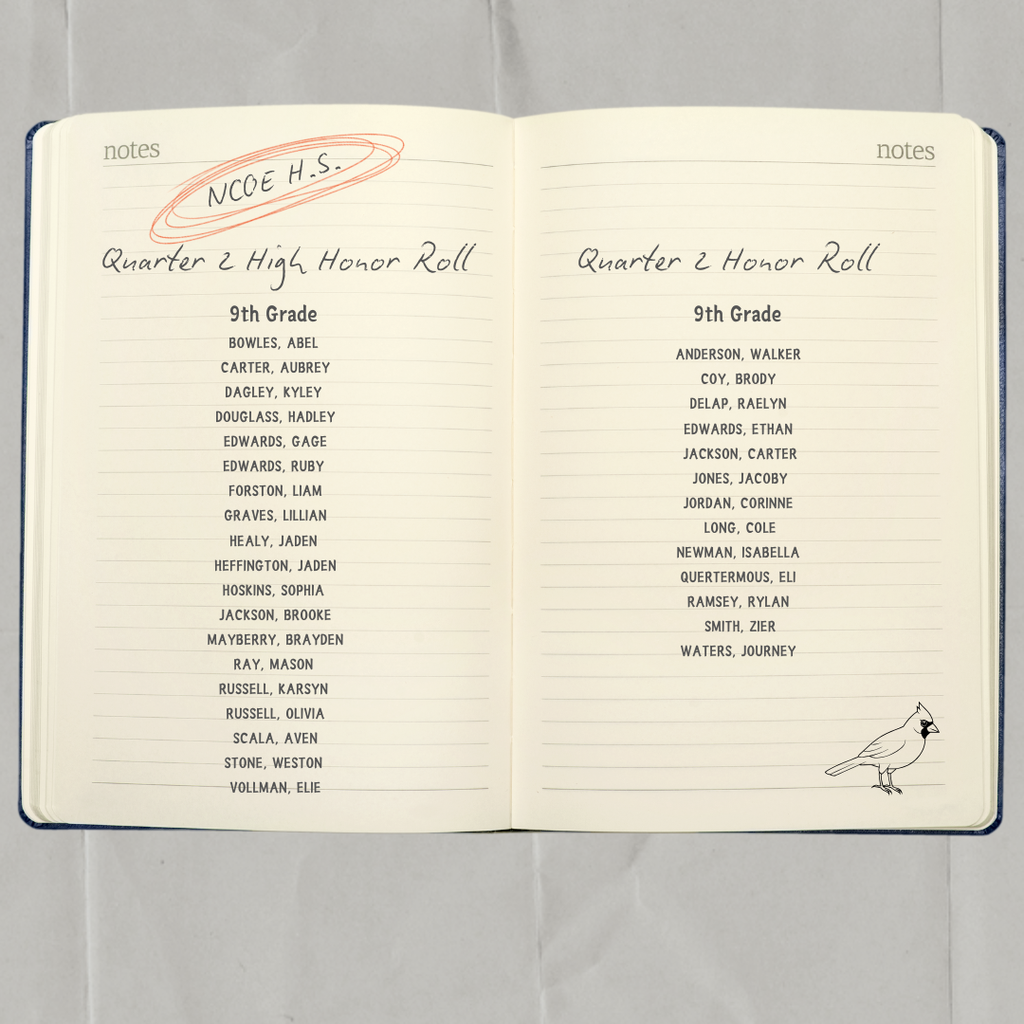 notes
NCOE H.S.
Quarter 2 High Honor Roll
9th Grade
BOWLES, ABEL
CARTER, AUBREY
DAGLEY, KYLEY
DOUGLASS, HADLEY
EDWARDS, GAGE
EDWARDS, RUBY
FORSTON, LIAM
GRAVES, LILLIAN
HEALY, JADEN
HEFFINGTON, JADEN
HOSKINS, SOPHIA
JACKSON, BROOKE
MAYBERRY, BRAYDEN
RAY, MASON
RUSSELL, KARSYN
RUSSELL, OLIVIA
SCALA, AVEN
STONE, WESTON
VOLLMAN, ELIE
notes
Quarter 2 Honor Roll
9th Grade
ANDERSON, WALKER
COY, BRODY
DELAP, RAELYN
EDWARDS, ETHAN
JACKSON, CARTER
JONES, JACOBY
JORDAN, CORINNE
LONG, COLE
NEWMAN, ISABELLA
QUERTERMOUS, ELI
RAMSEY, RYLAN
SMITH, ZIER
WATERS, JOURNEY